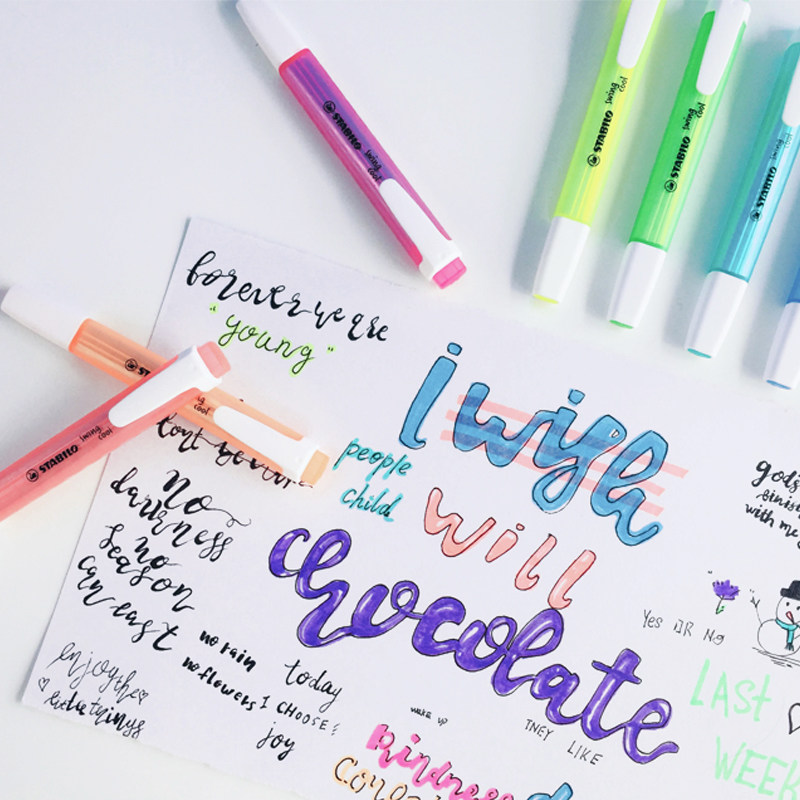 STABILO swing cool
STABILO swing cool
STABILO swing cool
STABILO swing cool
STABILO swing cool
forever we are
"young"
i wish
people
child
will
No
darkness
no
season
can east
chocolate
gods
with me
Yes OR No
no rain
no flowers
enjoy the
little things
today
I CHOOSE
joy
wake up
THEY LIKE
LAST
WEEK
kindness